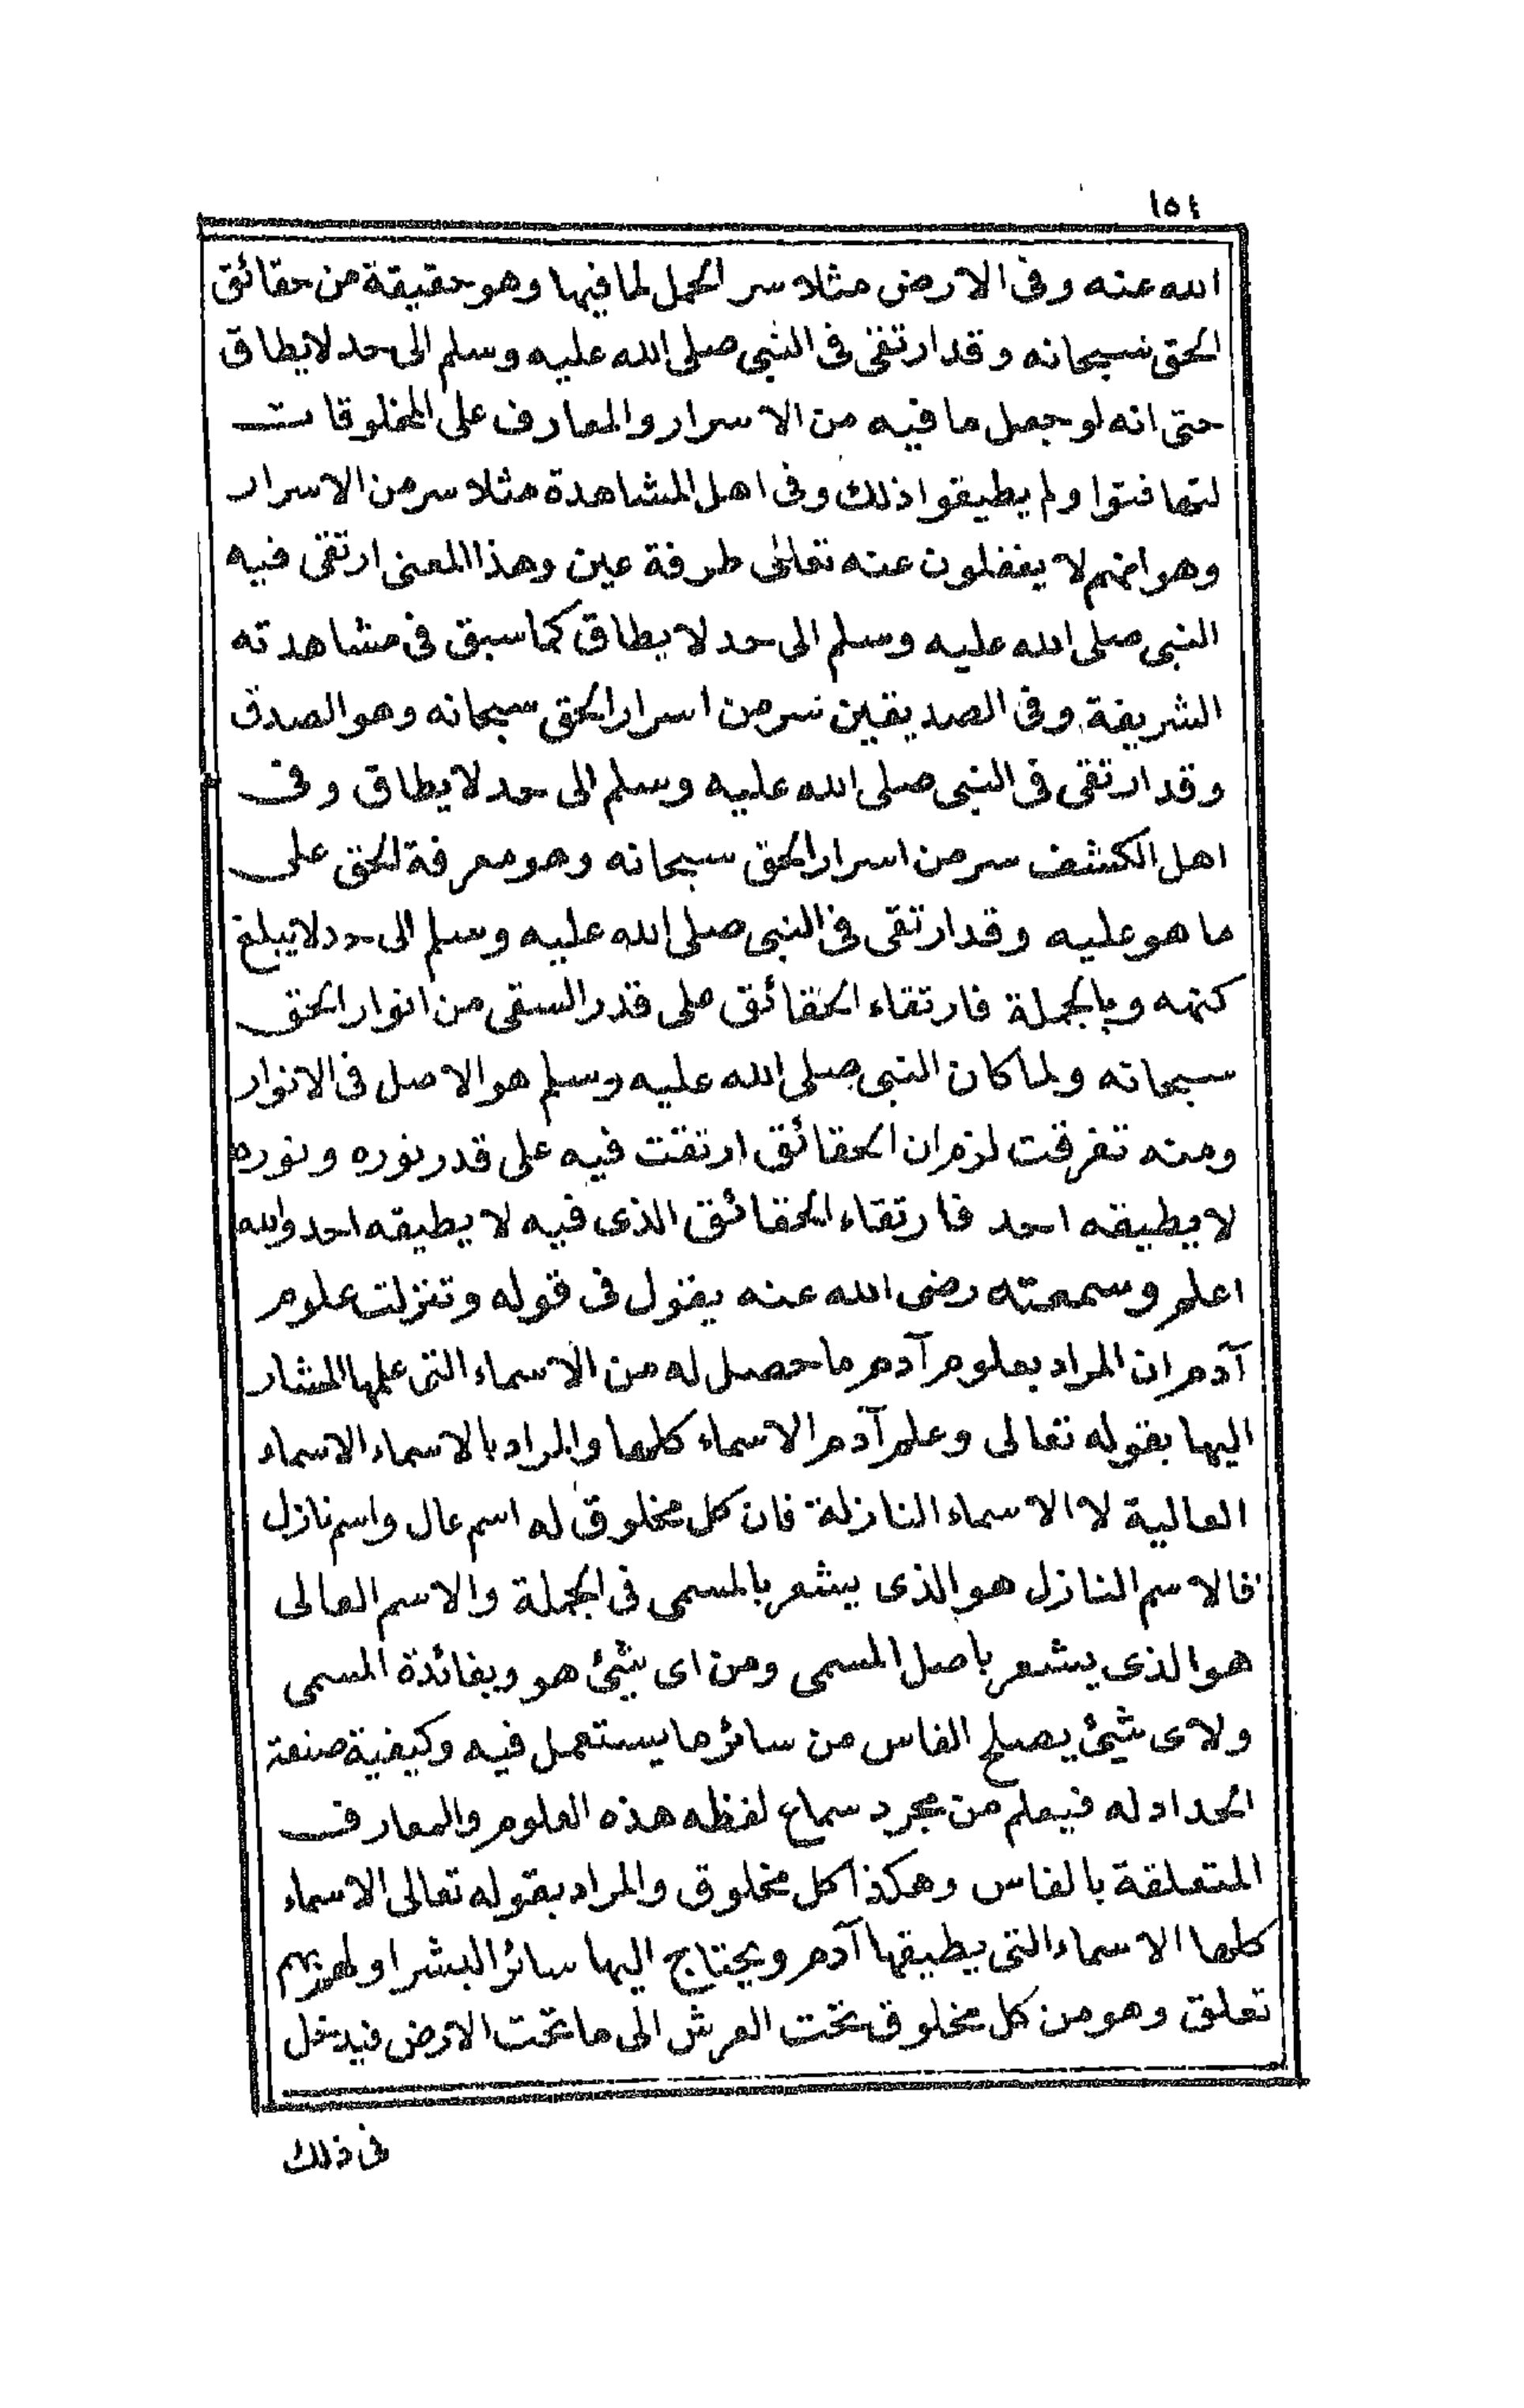 ١٥٤
الله عنه وفى الارض مثلا سر الحمل لما فيها وهو حقيقة من حقائق
الحق سبحانه وقد ارتقى فى النبى صلى الله عليه وسلم الى حد لا يطاق
حتى انه لو جعل ما فيه من الاسرار والمعارف على المخلوقات
لتهافتوا ولم يطيقوا ذلك وفى اهل المشاهدة مثلا سر من الاسرار
وهو انهم لا يغفلون عنه تعالى طرفة عين وهذا المعنى ارتقى فيه
النبى صلى الله عليه وسلم الى حد لا يطاق كما سبق فى مشاهدته
الشريفة وفى الصديقين سر من اسرار الحق سبحانه وهو الصدق
وقد ارتقى فى النبى صلى الله عليه وسلم الى حد لا يطاق وفى
اهل الكشف سر من اسرار الحق سبحانه وهو معرفة الحق على
ما هو عليه وقد ارتقى فى النبى صلى الله عليه وسلم الى حد لا يبلغ
كنهه وبالجملة فارتقاء الحقائق على قدر السقى من انوار الحق
سبحانه ولما كان النبى صلى الله عليه وسلم هو الاصل فى الانوار
ومنه تفرقت لزم ان الحقائق ارتقت فيه على قدر نوره ونوره
لا يطيقه احد فارتقاء الحقائق الذى فيه لا يطيقه احد والله
اعلم وسمعته رضى الله عنه يقول فى قوله وتنزلت علوم
آدم ان المراد بعلوم آدم ما حصل له من الاسماء التى علمها المشار
اليها بقوله تعالى وعلم آدم الاسماء كلها والمراد بالاسماء الاسماء
العالية لا الاسماء النازلة فان كل مخلوق له اسم عال واسم نازل
فالاسم النازل هو الذى يشعر بالمسمى فى الجملة والاسم العالى
هو الذى يشعر باصل المسمى ومن اى شئ هو وبفائدة المسمى
ولاى شئ يصلح الفاس من سائر ما يستعمل فيه وكيفية صنعة
الحداد له فيعلم من مجرد سماع لفظه هذه العلوم والمعارف
المتعلقة بالفاس وهكذا كل مخلوق والمراد بقوله تعالى الاسماء
كلها الاسماء التى يطيقها آدم ويحتاج اليها سائر البشر او لهم بهم
تعلق وهو من كل مخلوق تحت العرش الى ما تحت الارض فيدخل
فى ذلك